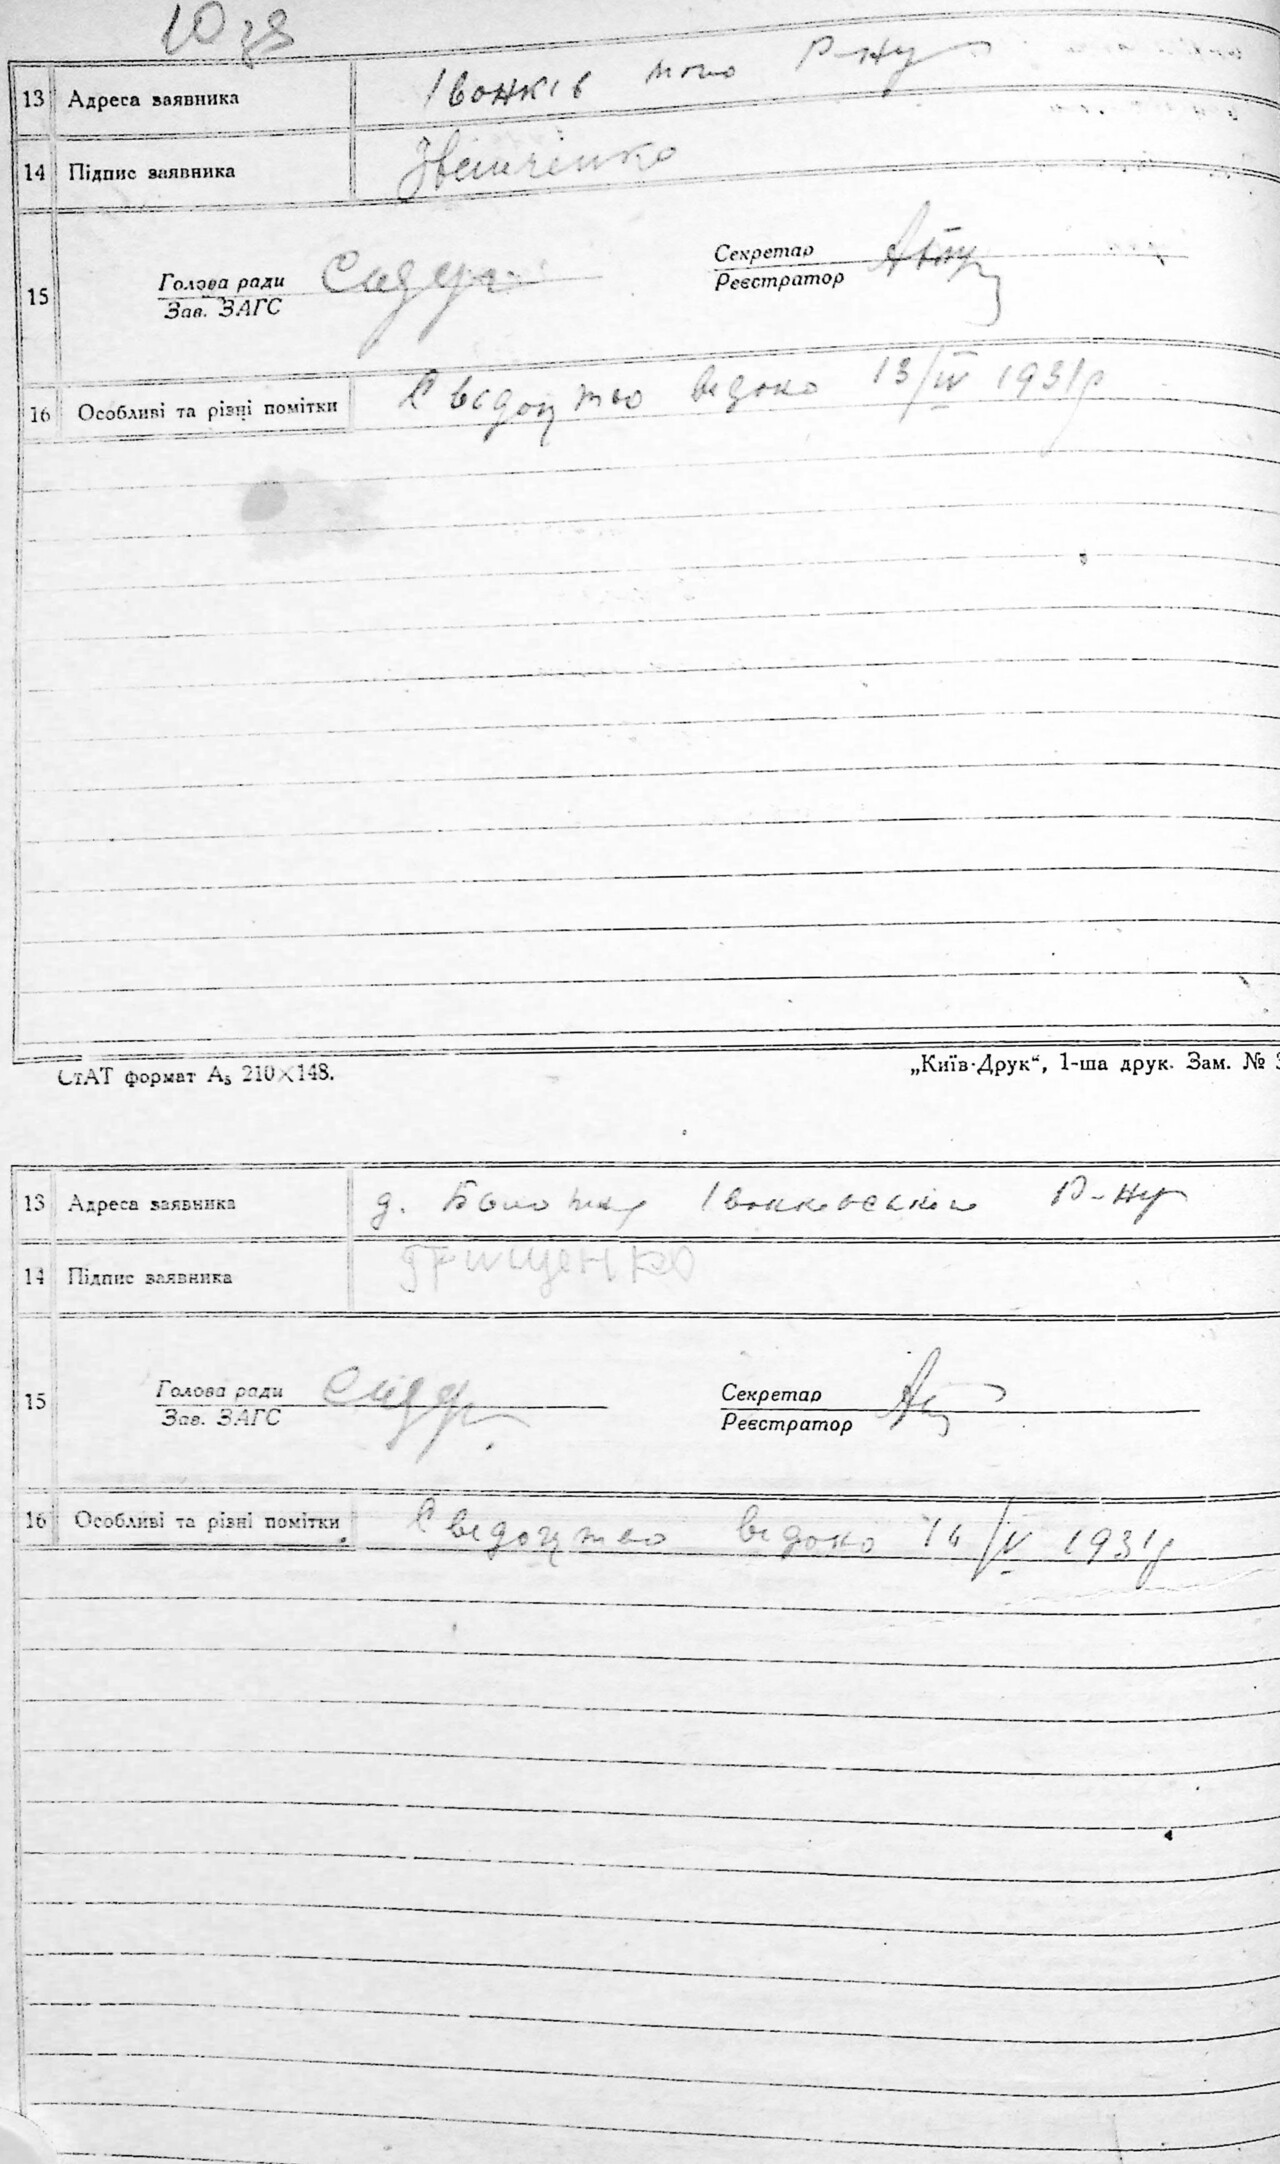 10 зв
13 Адреса заявника Іванків того Р-ну
14 Підпис заявника
15 Голова ради Секретар
Зав. ЗАГС Реєстратор
16 Особливі та різні помітки Свідоцтво відано 13/IV 1931р
СтАТ формат А₅ 210×148. „Київ-Друк“, 1-ша друк. Зам. № 3
13 Адреса заявника д. Болотня Іванковського Р-ну
14 Підпис заявника Грищенко
15 Голова ради Секретар
Зав. ЗАГС Реєстратор
16 Особливі та різні помітки Свідоцтво відано 14/IV 1931р